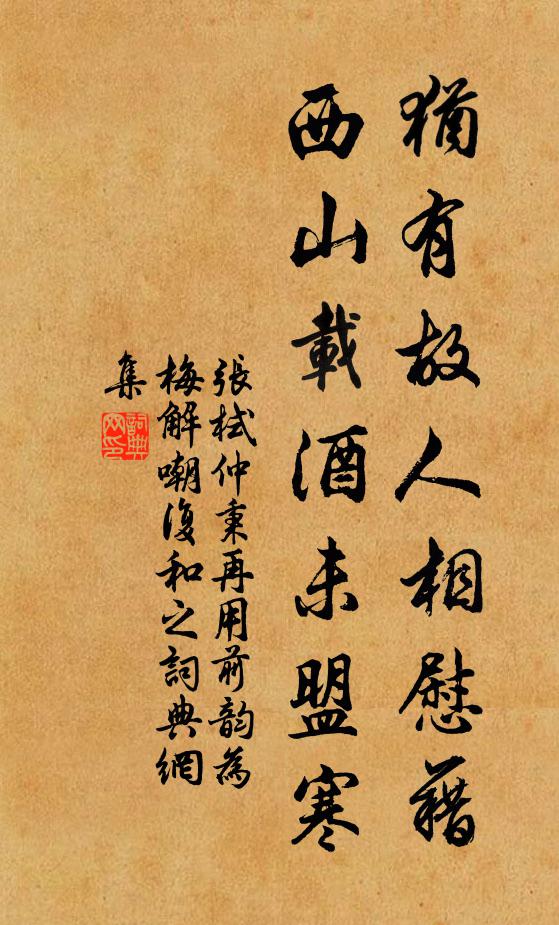 猶有故人相慰藉
西山載酒未盟寒
張栻仲秉再用前韵為
梅解嘲復和之詞典網
集
詞典網印